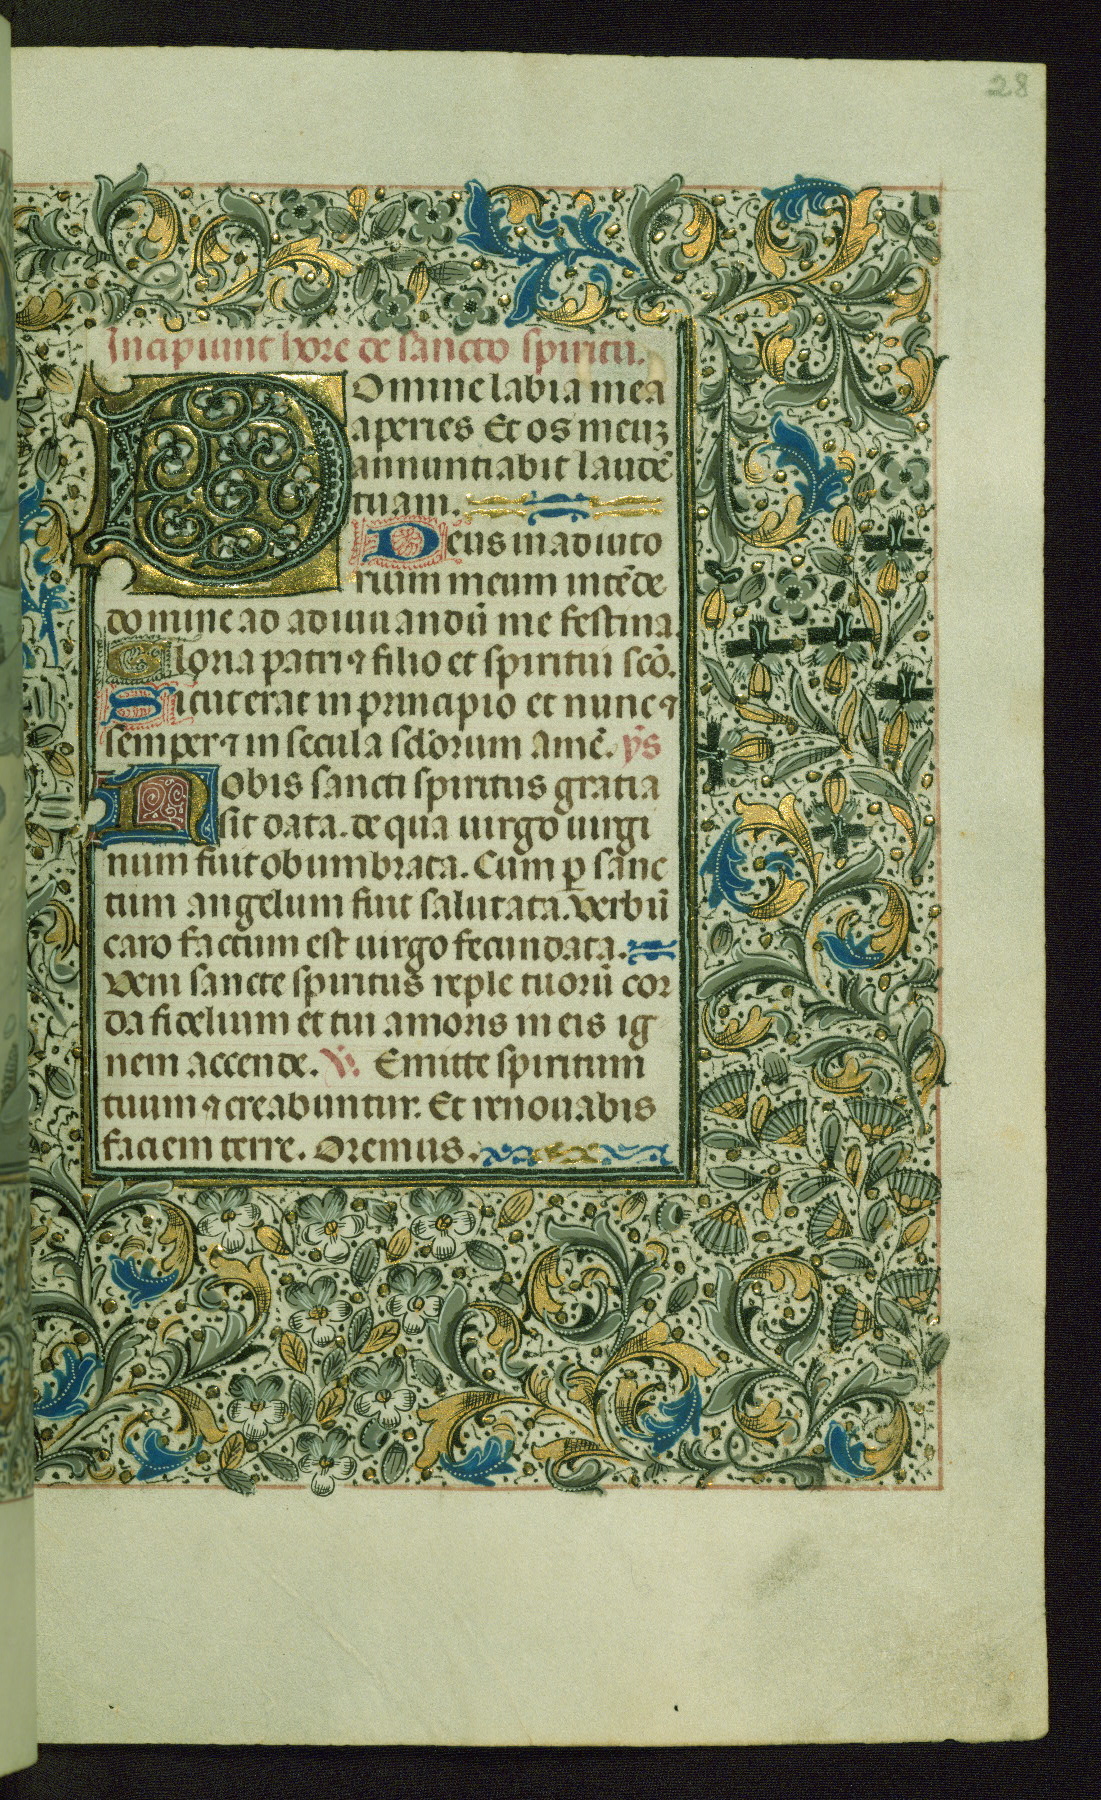 28
Incipiunt hore de sancto spiritu.
Domine labia mea
aperies Et os meuz
annuntiabit laudē
tuam.
Deus in adiuto
rium meum intēde
domine ad adiuuandū me festina.
Gloria patri ⁊ filio et spiritui scō.
Sicut erat in principio et nunc ⁊
semper ⁊ in secula sclōrum amē. ẏs
Nobis sancti spiritus gratia
sit data. de qua uirgo uirgi
num fuit obumbrata. Cum ꝑ sanc
tum angelum fuit salutata. verbū
caro factum est uirgo fecundata.
Veni sancte spiritus reple tuorū cor
da fidelium et tui amoris in eis ig
nem accende. ℣. Emitte spiritum
tuum ⁊ creabuntur. Et renouabis
faciem terre. Oremus.